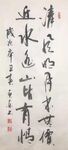 清風明月本無價
近水遠山皆有情
戊戌年